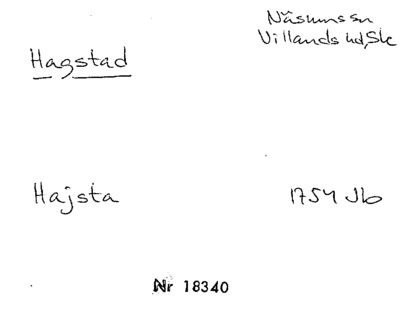 Näsums sn
Villands hd, Sk
Hagstad
Hajsta
1754 Jb
Nr 18340